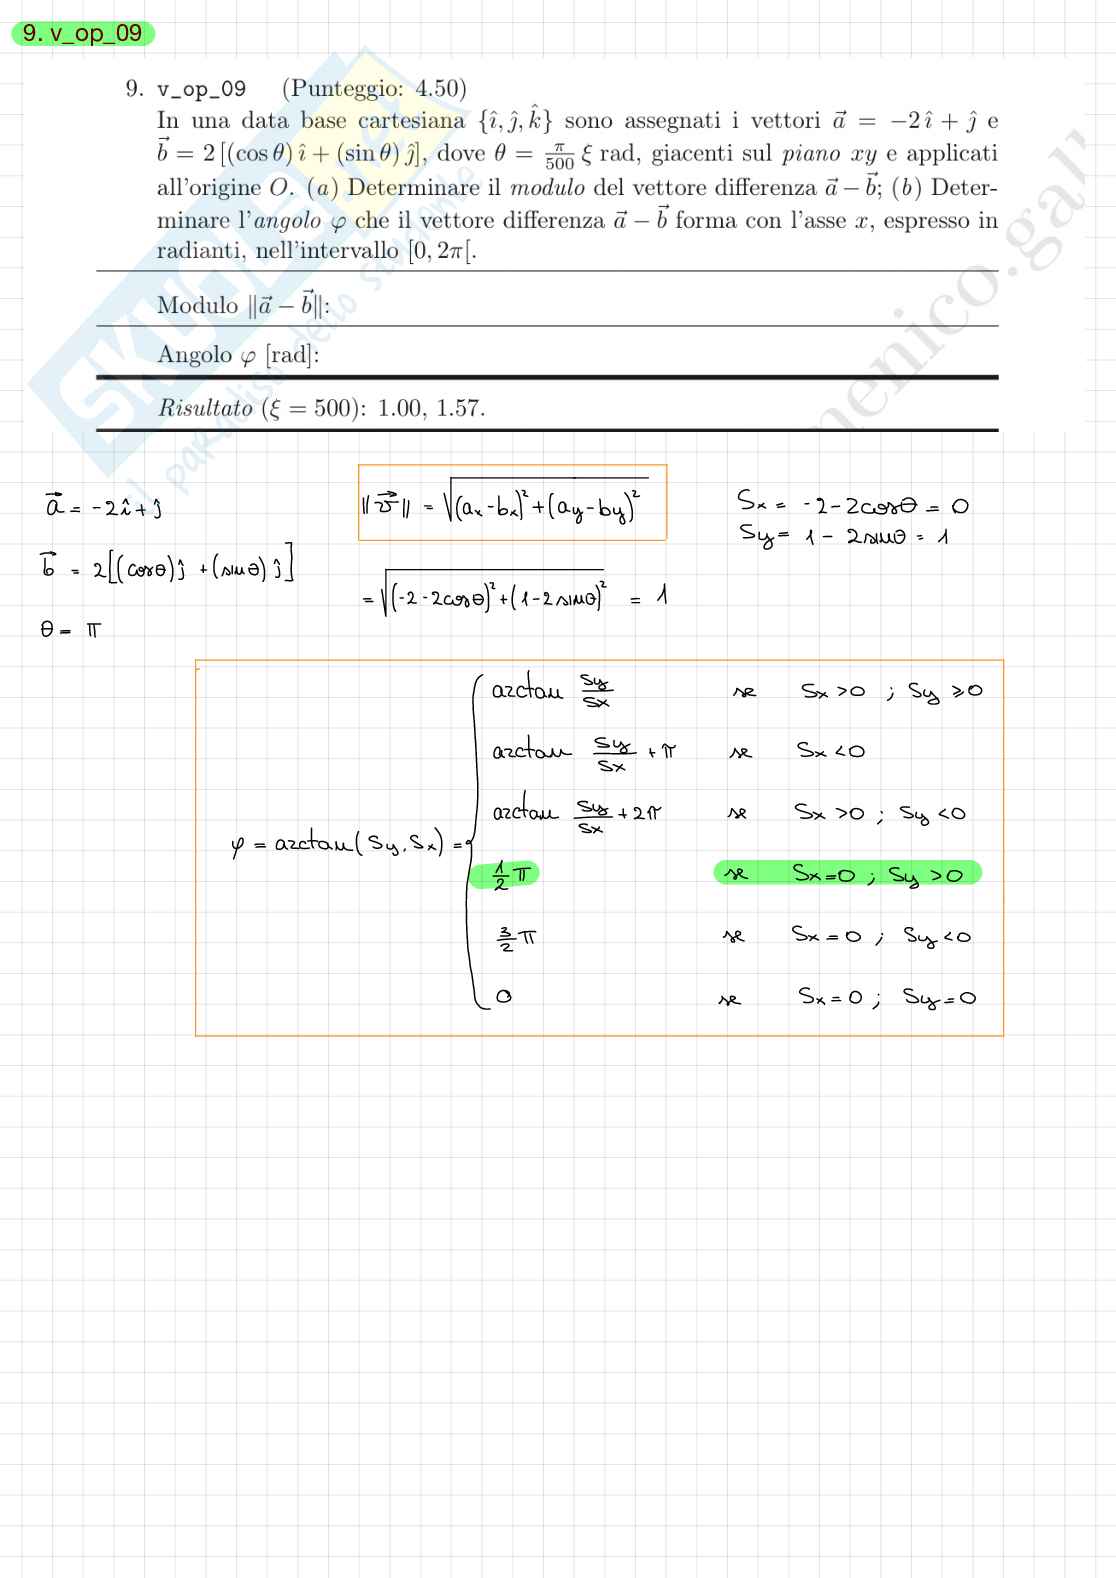 9. v_op_09
9. v_op_09 (Punteggio: 4.50)
In una data base cartesiana {î, ĵ, k̂} sono assegnati i vettori a⃗ = −2 î + ĵ e
b⃗ = 2 [(cos θ) î + (sin θ) ĵ], dove θ = π/500 ξ rad, giacenti sul piano xy e applicati
all'origine O. (a) Determinare il modulo del vettore differenza a⃗ − b⃗; (b) Deter-
minare l'angolo φ che il vettore differenza a⃗ − b⃗ forma con l'asse x, espresso in
radianti, nell'intervallo [0, 2π[.
Modulo ‖a⃗ − b⃗‖:
Angolo φ [rad]:
Risultato (ξ = 500): 1.00, 1.57.
SKUOLA.net
il paradiso dello studente
menico.gal
a⃗ = -2î + ĵ
b⃗ = 2[(cosθ)ĵ + (sinθ)ĵ]
θ = π
‖v⃗‖ = √(ax-bx)² + (ay-by)²
= √(-2-2cosθ)² + (1-2sinθ)² = 1
Sx = -2-2cosθ = 0
Sy = 1 - 2sinθ = 1
φ = arctan(Sy, Sx) = {
arctan Sy/Sx se Sx>0 ; Sy ≥0
arctan Sy/Sx + π se Sx<0
arctan Sy/Sx + 2π se Sx>0 ; Sy<0
1/2 π se Sx=0 ; Sy>0
3/2 π se Sx=0 ; Sy<0
0 se Sx=0 ; Sy=0